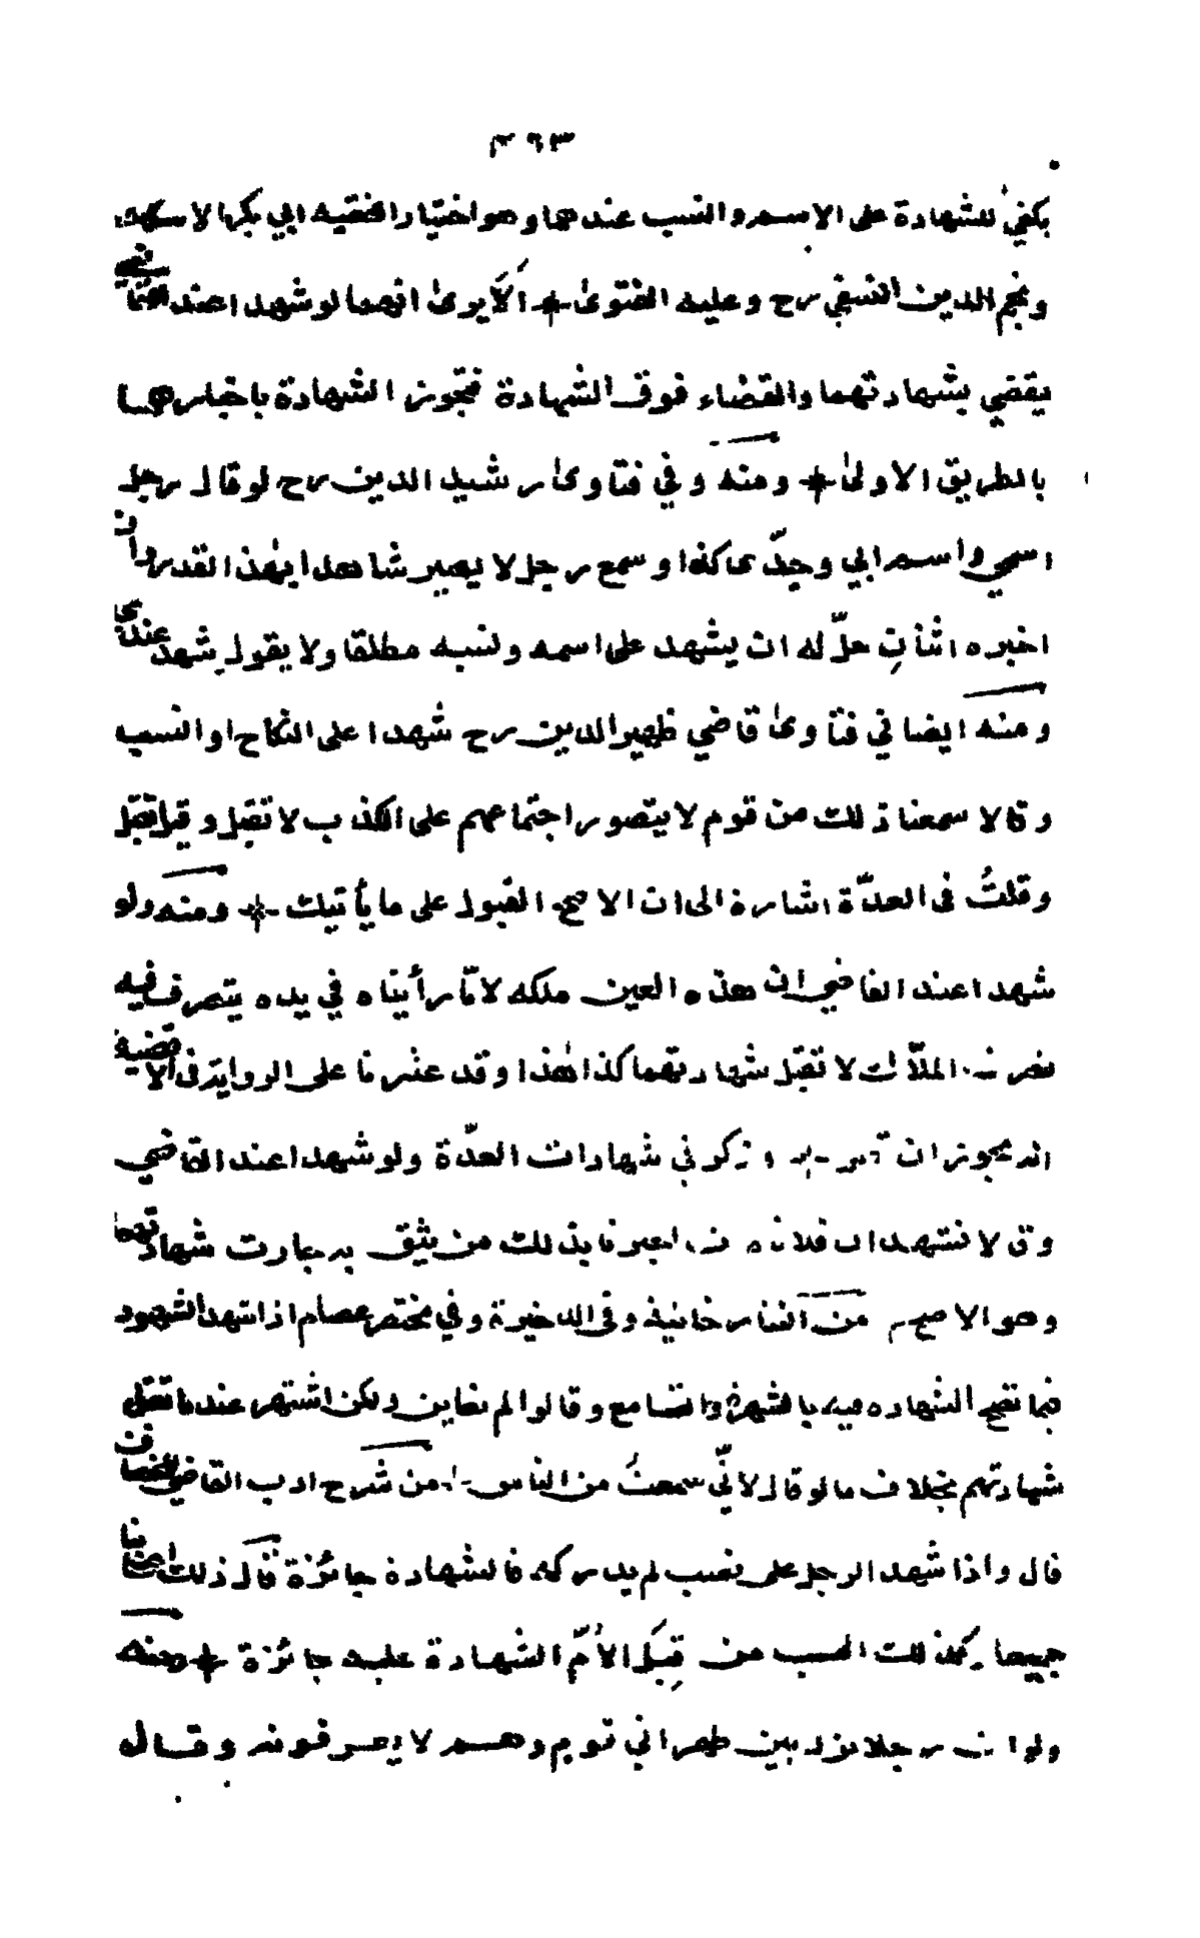 ٤٦٣
يكفي للشهادة على الاسم والنسب عندهما وهو اختيار الفقيه ابي بكر الاسكاف
ونجم الدين النسفي رح وعليه الفتوىٰ * ألا يرىٰ انهما لو شهدا عند القاضي
يقضي بشهادتهما والقضاء فوق الشهادة فتجوز الشهادة باخبارهما
بالطريق الاولىٰ * ومنه وفي فتاوىٰ رشيد الدين رح لو قال رجل
اسمي واسم ابي وجدّي كذا وسمع رجل لا يصير شاهدا بهٰذا القدر وان
اخبره اثنان حلّ له ان يشهد على اسمه ونسبه مطلقا ولا يقول شهد عندي
ومنه ايضا في فتاوىٰ قاضي ظهير الدين رح شهدا على النكاح او النسب
وقالا سمعنا ذلك من قوم لا يتصور اجتماعهم على الكذب لا تقبل وقيل تقبل
وقلتُ في العدّة اشارة الى ان الاصح القبول على ما يأتيك * ومنه ولو
شهدا عند القاضي ان هذه العين ملكه لانّا رأيناه في يده يتصرف فيه
تصرف الملّاك لا تقبل شهادتهما كذا هٰذا وقد عثرنا على الرواية في الاقضية
انه يجوز ان وذكر في شهادات العدّة ولو شهدا عند القاضي
وقالا نشهد ان فلانا اخبرنا بذلك من يثق به جازت شهادتهما
وهو الاصح من التتارخانية وفي الذخيرة وفي مختصر عصام اذا شهد الشهود
فيما تصح الشهادة فيه بالشهرة والتسامع وقالوا لم نعاين ولكن اشتهر عندنا تقبل
شهادتهم بخلاف ما لو قال لانّي سمعتُ من الناس * من شرح ادب القاضي للخصاف
قال واذا شهد الرجل على نسب لم يدركه فالشهادة جائزة قال ذلك اصحابنا
جميعا وكذلك النسب من قِبَل الأمّ الشهادة عليه جائزة * ومنه
ولو ان رجلا نزل بين ظهراني قوم وهم لا يعرفونه وقال